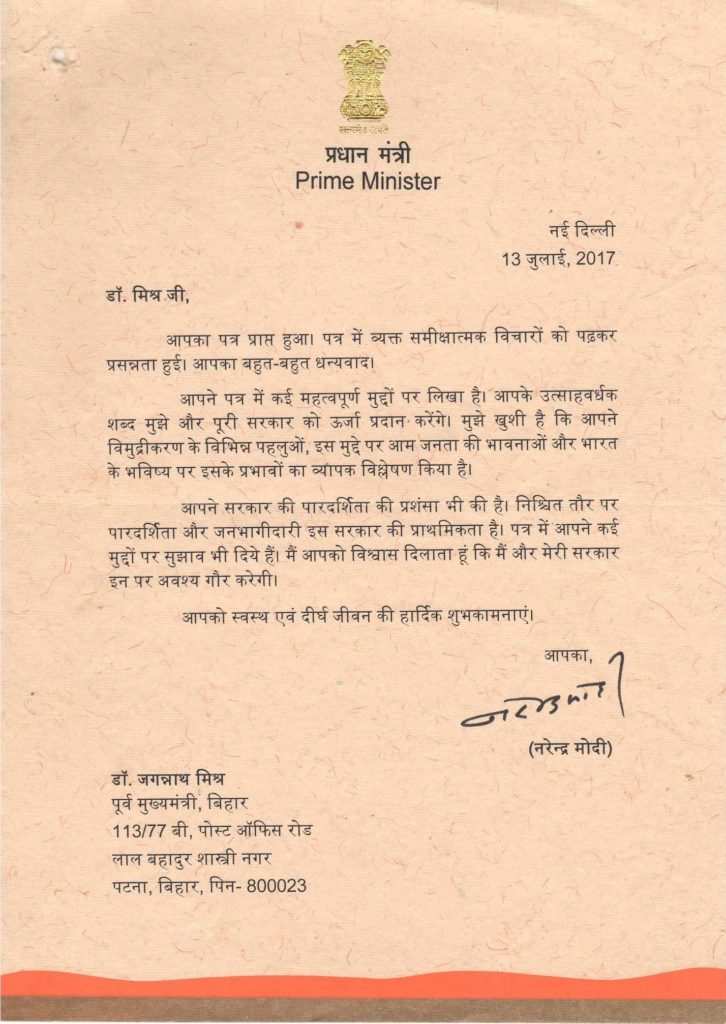 सत्यमेव जयते
प्रधान मंत्री
Prime Minister
नई दिल्ली
13 जुलाई, 2017
डॉ. मिश्र जी,
आपका पत्र प्राप्त हुआ। पत्र में व्यक्त समीक्षात्मक विचारों को पढ़कर
प्रसन्नता हुई। आपका बहुत-बहुत धन्यवाद।
आपने पत्र में कई महत्वपूर्ण मुद्दों पर लिखा है। आपके उत्साहवर्धक
शब्द मुझे और पूरी सरकार को ऊर्जा प्रदान करेंगे। मुझे खुशी है कि आपने
विमुद्रीकरण के विभिन्न पहलुओं, इस मुद्दे पर आम जनता की भावनाओं और भारत
के भविष्य पर इसके प्रभावों का व्यापक विश्लेषण किया है।
आपने सरकार की पारदर्शिता की प्रशंसा भी की है। निश्चित तौर पर
पारदर्शिता और जनभागीदारी इस सरकार की प्राथमिकता है। पत्र में आपने कई
मुद्दों पर सुझाव भी दिये हैं। मैं आपको विश्वास दिलाता हूं कि मैं और मेरी सरकार
इन पर अवश्य गौर करेगी।
आपको स्वस्थ एवं दीर्घ जीवन की हार्दिक शुभकामनाएं।
आपका,
नरेन्द्र मोदी
(नरेन्द्र मोदी)
डॉ. जगन्नाथ मिश्र
पूर्व मुख्यमंत्री, बिहार
113/77 बी, पोस्ट ऑफिस रोड
लाल बहादुर शास्त्री नगर
पटना, बिहार, पिन- 800023